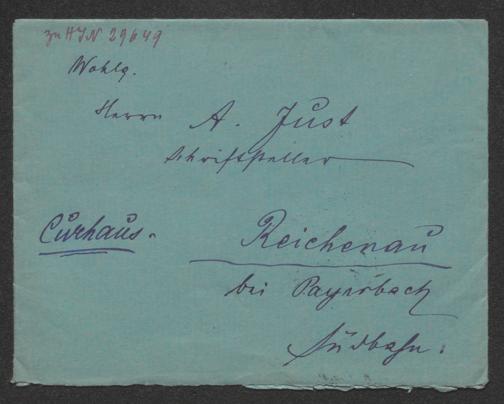 zu HJN 29649
Wohlg.
Herrn A. Just
Schriftsteller
Curhaus.
Reichenau
bei Payerbach
Südbahn.